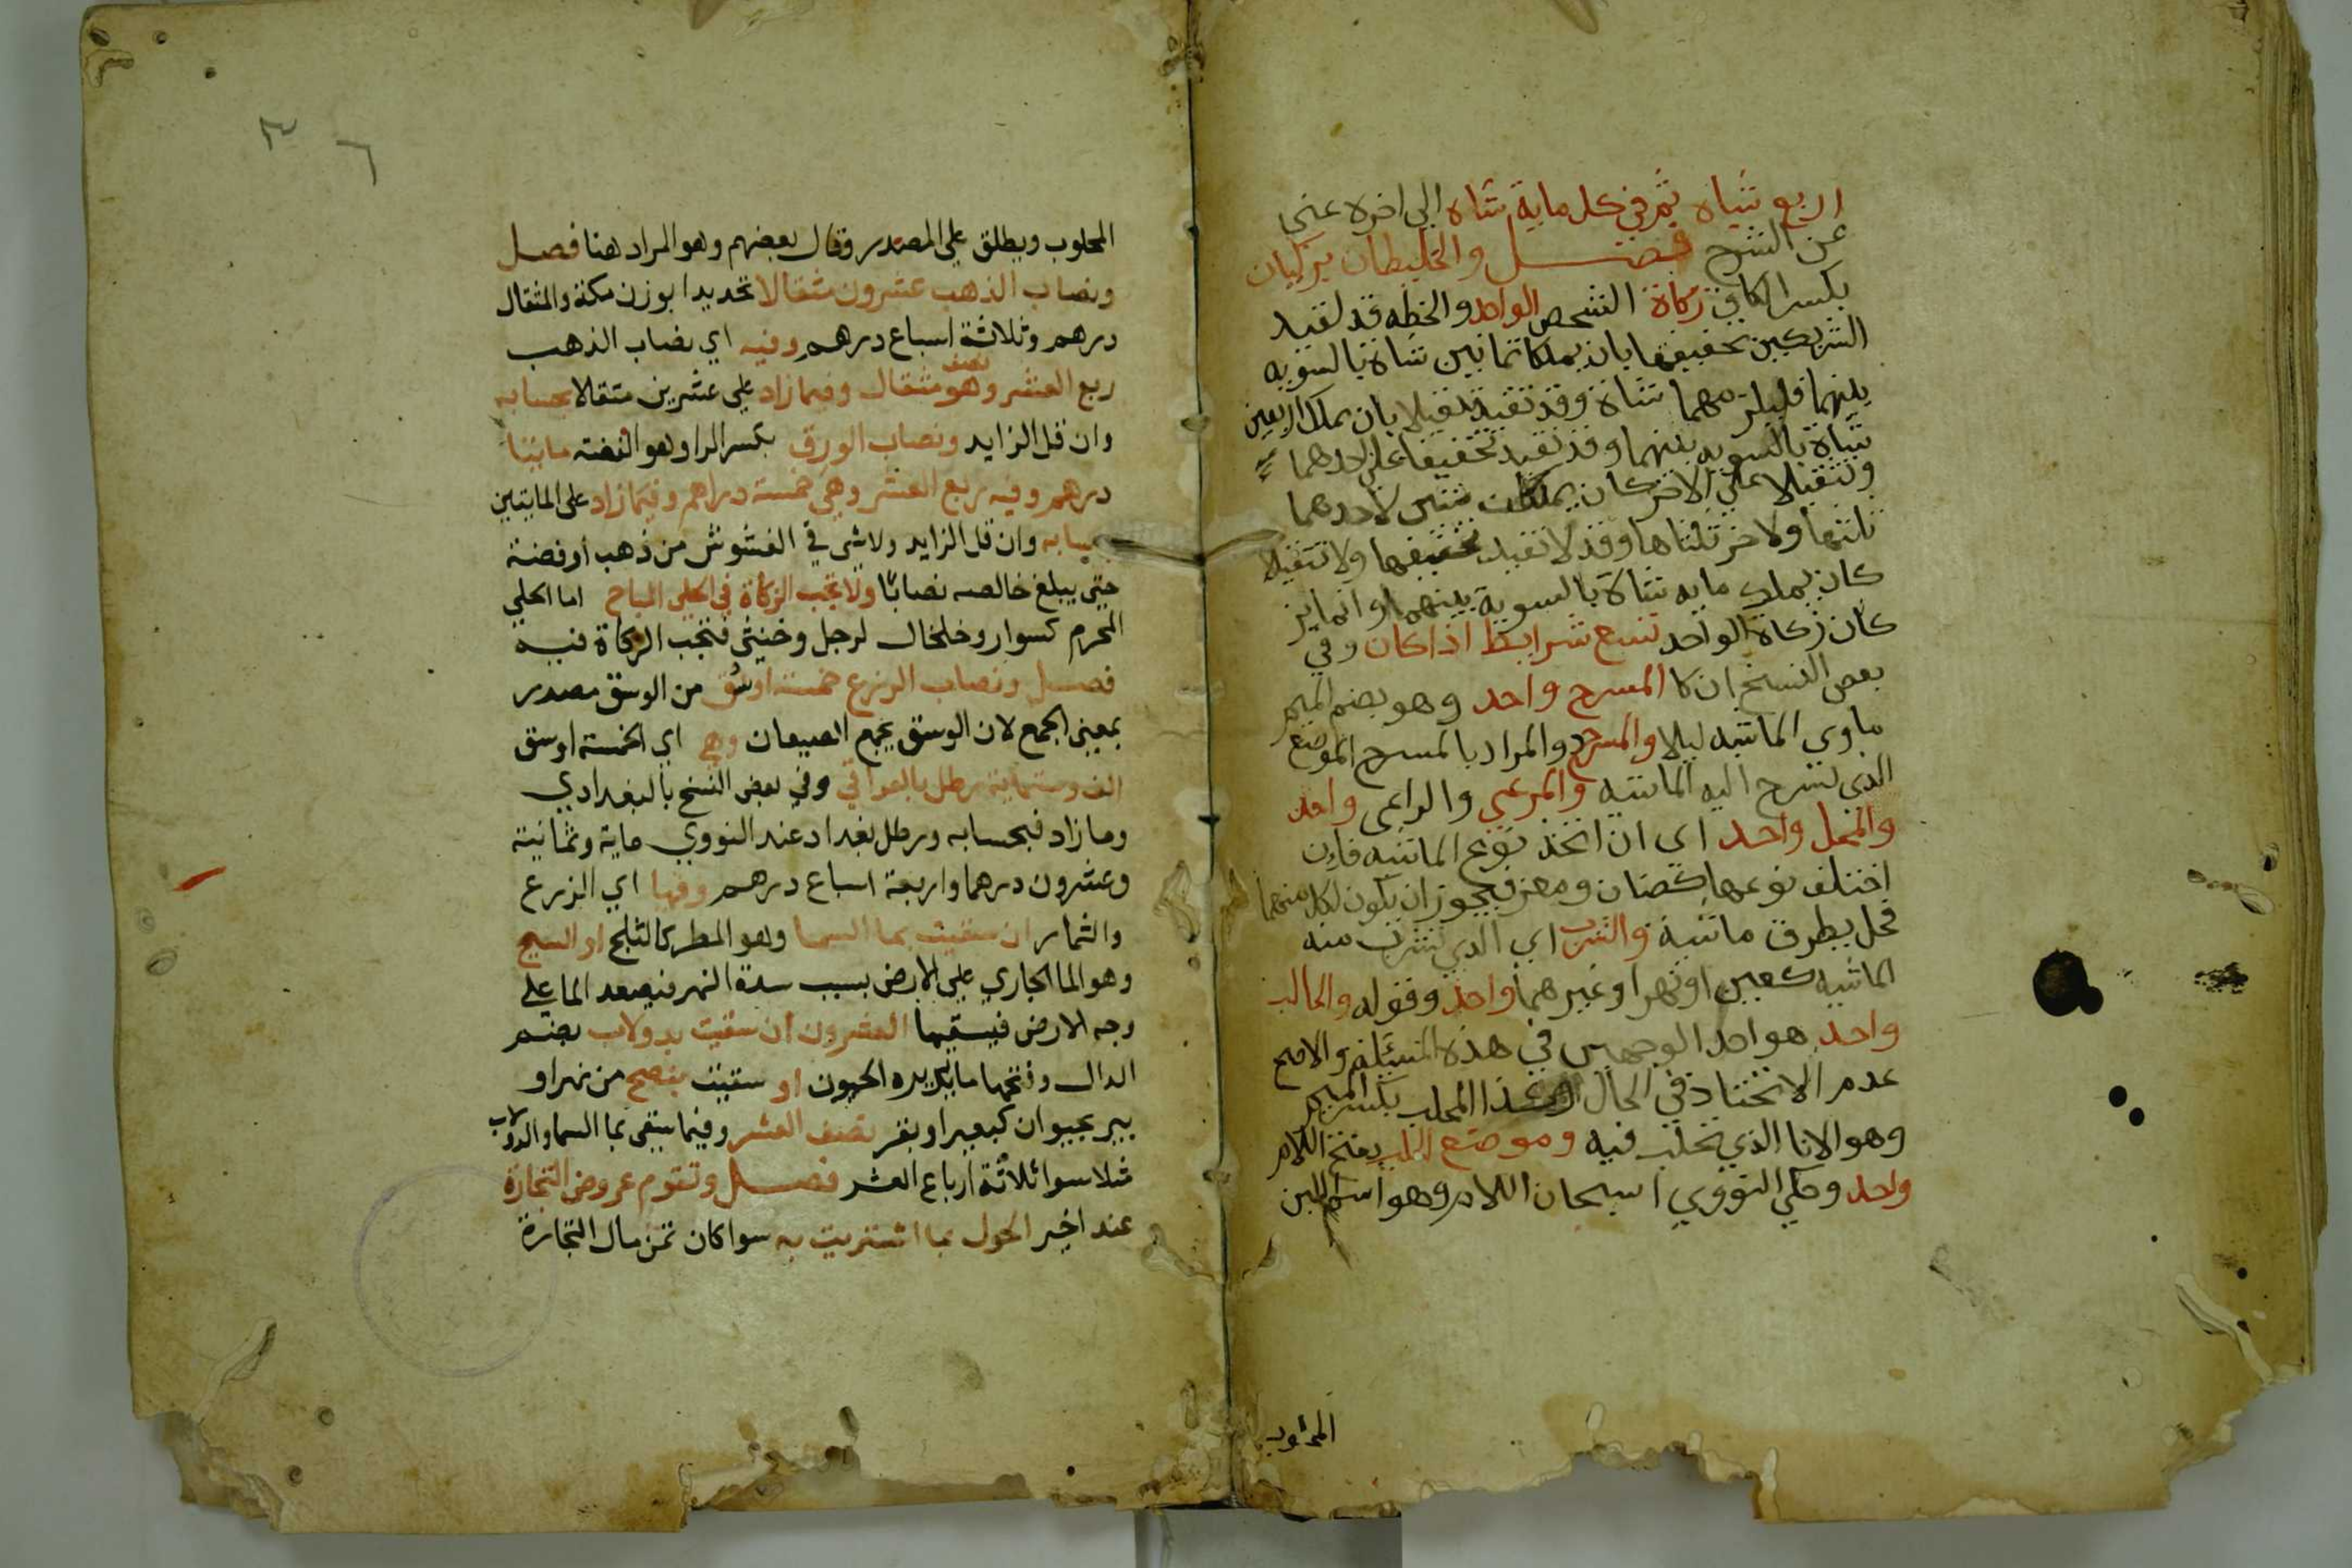 اربع شياه ثم في كل ماية شاة الي اخره غني
عن الشرح فصل والخليطان يزكيان
بكسر الكاف زكاة الشخص الواحد والخلطه قد تفيد
الشريكين تخفيفا بان يملكا ثمانين شاة بالسويه
بينهما فيلزمهما شاة وقد تفيد تثقيلا بان يملكا اربعين
شاة بالسويه بينهما وقد تفيد تخفيفا علي احدهما
وتثقيلا علي الاخر كان يملكان ستين لاحدهما
ثلثها ولاخر ثلثاها وقد لا تفيد تخفيفا ولا تثقيلا
كان يملك مايه شاة بالسوية بينهما وانما يز
كان زكاة الواحد تسع شرايط اذا كان وفي
بعض النسخ ان كا المسرح واحد وهو بضم الميم
ماوي الماشيه ليلا والمسرح والمراد بالمسرح الموضع
الذي تسرح اليه الماشيه والمرعي والراعي واحد
والفحل واحد اي ان اتخذ نوع الماشيه فان
اختلف نوعها كضان ومعز فيجوز ان يكون لكل منهما
فحل يطرق ماشية والشرب اي الذي تشرب منه
الماشيه كعين او نهر او غيرهما واحد وقوله والحالب
واحد هو احد الوجهين في هذه المسئلة والاصح
عدم الاتحاد في الحال وكذا المحلب بكسر الميم
وهو الانا الذي تحلب فيه وموضع الحلب بفتح اللام
واحد وحكي النووي اسكان اللام وهو اسم اللبن
المحلوب
المحلوب ويطلق علي المصدر وقال بعضهم وهو المراد هنا فصل
ونصاب الذهب عشرون مثقالا تحديدا بوزن مكة والمثقال
درهم وثلاثة اسباع درهم وفيه اي نصاب الذهب
ربع العشر وهو نصف مثقال وفيما زاد علي عشرين مثقالا بحسابه
وان قل الزايد ونصاب الورق بكسر الرا وهو الفضة مايتا
درهم وفيه ربع العشر وهي خمسة دراهم وفيما زاد على المايتين
بحسابه وان قل الزايد ولا شي في الغشوش من ذهب او فضة
حتي يبلغ خالصه نصابًا ولا تجب الزكاة في الحلي المباح اما الحلي
المحرم كسوار وخلخال لرجل وخنثي فتجب الزكاة فيه
فصل ونصاب الزرع خمسة اوسق من الوسق مصدر
بمعني الجمع لان الوسق يجمع الصيعان وهي اي الخمسة اوسق
الف وستماية رطل بالعراقي وفي بعض النسخ بالبغدادي
وما زاد فبحسابه ورطل بغداد عند النووي ماية وثمانية
وعشرون درهما واربعة اسباع درهم وفيها اي الزرع
والثمار ان سقيت بما السما وهو المطر كالثلج او السيح
وهو الما الجاري علي الارض بسبب سدة النهر فيصعد الما علي
وجه الارض فيسقيها العشر وان سقيت بدولاب بضم
الدال وفتحها ما يديره الحيون او سقيت بنضح من نهر او
بير بحيوان كبعير او بقر نصف العشر وفيما يسقي بما السما والدولاب
مثلا سوا ثلاثة ارباع العشر فصل وتقوم عروض التجارة
عند اخير الحول بما اشتريت به سوا كان ثمن مال التجارة